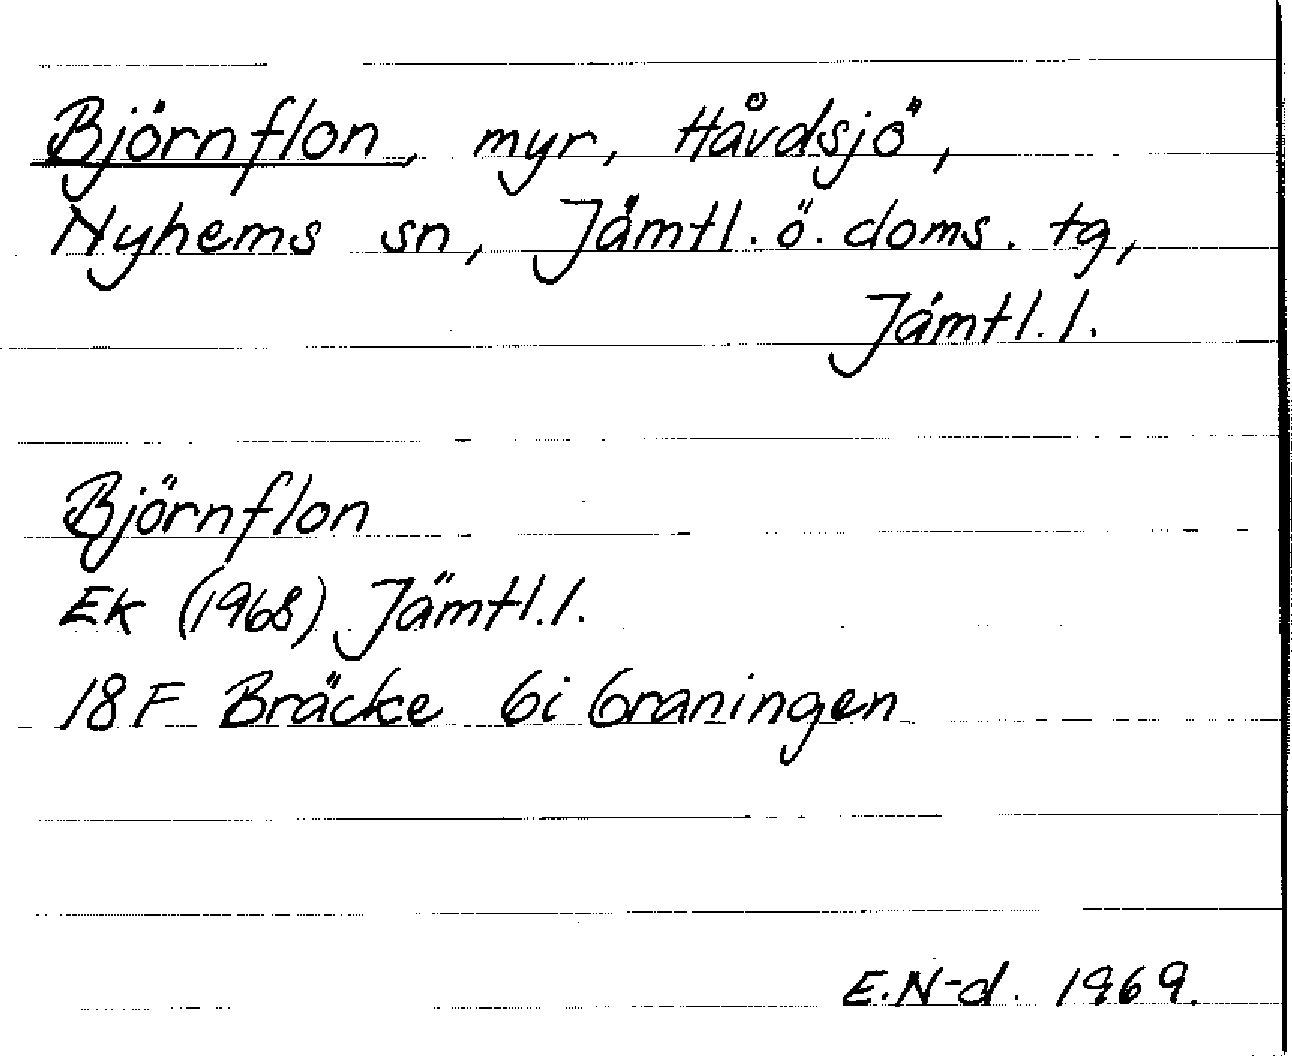 Björnflon, myr, Håvdsjö,
Nyhems sn, Jämtl. ö. doms. tg,
Jämtl. l.
Björnflon
Ek (1968) Jämtl. l.
18 F Bräcke 6i Graningen
E.N-d. 1969.